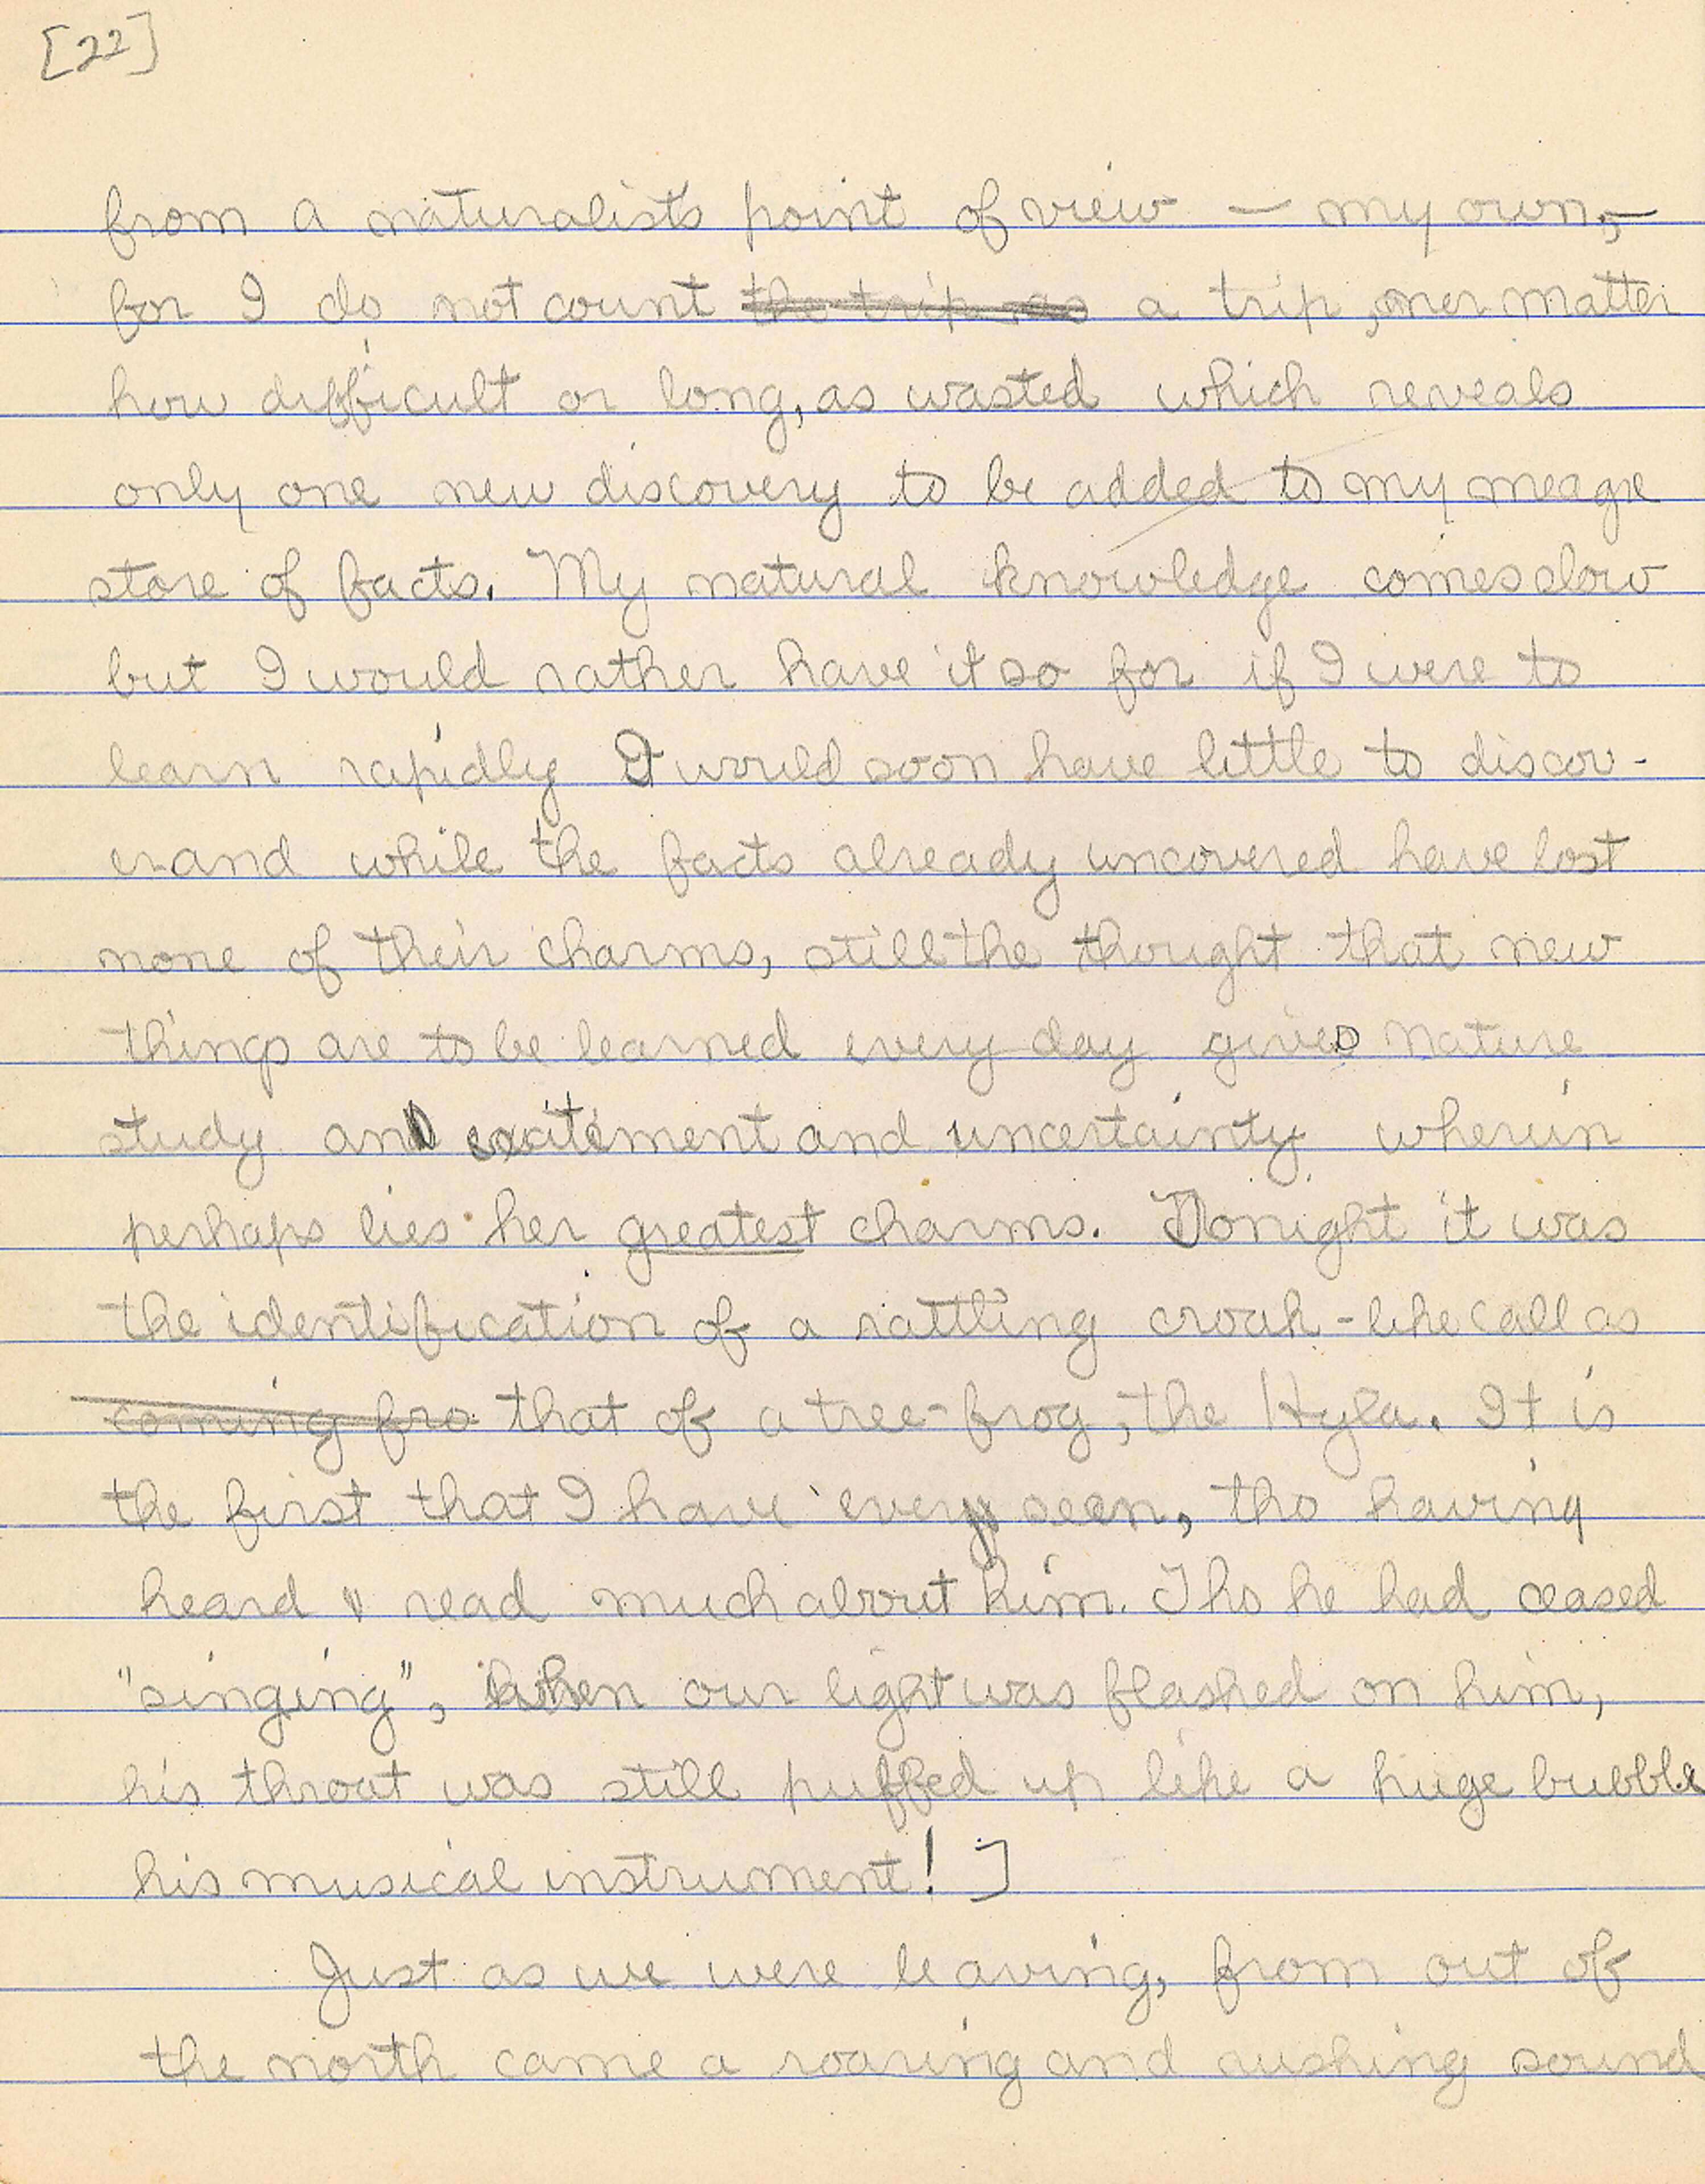 [22]
from a naturalists point of view — my own, —
for I do not count ~~the trip as~~ a trip, ner matter
how difficult or long, as wasted which reveals
only one new discovery to be added to my meagre
store of facts. My natural knowledge comes slow
but I would rather have it so for if I were to
learn rapidly I would soon have little to discov-
er and while the facts already uncovered have lost
none of their charms, still the thought that new
things are to be learned every day gives nature
study an excitement and uncertainty wherein
perhaps lies her greatest charms. Tonight it was
the identification of a rattling croak-like call as
~~coming fro~~ that of a tree-frog, the Hyla. It is
the first that I have ever seen, tho having
heard & read much about him. Tho he had ceased
"singing", when our light was flashed on him,
his throat was still puffed up like a huge bubble
his musical instrument! ]
Just as we were leaving, from out of
the north came a roaring and rushing sound